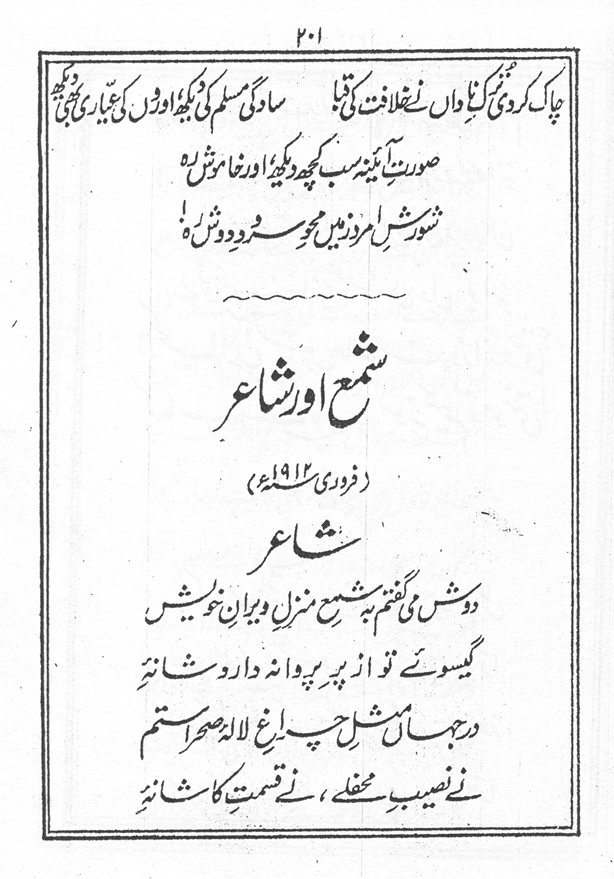 ۲۰۱
چاک کر دی ترکِ ناداں نے خلافت کی قبا سادگی مسلم کی دیکھ، اوروں کی عیّاری بھی دیکھ
صورتِ آئینہ سب کچھ دیکھ، اور خاموش رہ
شورشِ امروز میں محوِ سرودِ دوش رہ!
شمع اور شاعر
(فروری ۱۹۱۲ء)
شاعر
دوش می گفتم بہ شمعِ منزلِ ویرانِ خویش
گیسوئے تو از پرِ پروانہ دارد شانۂِ
در جہاں مثلِ چراغِ لالۂ صحراستم
نے نصیبِ محفلے، نے قسمتِ کاشانۂِ